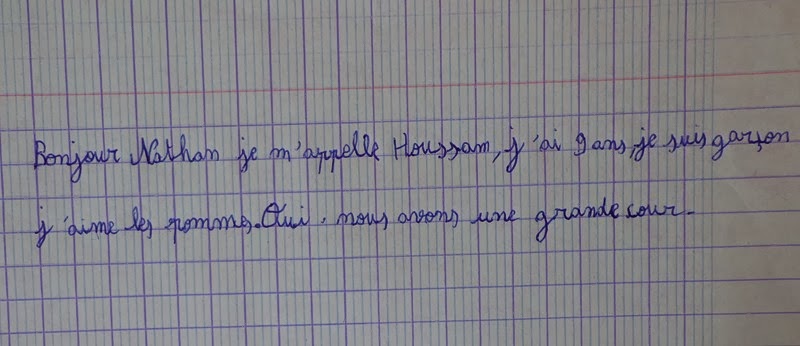 Bonjour Nathan je m'appelle Houssam, j'ai 9 ans, je suis garson
j'aime les pommes. Oui, nous avons une grande cour.